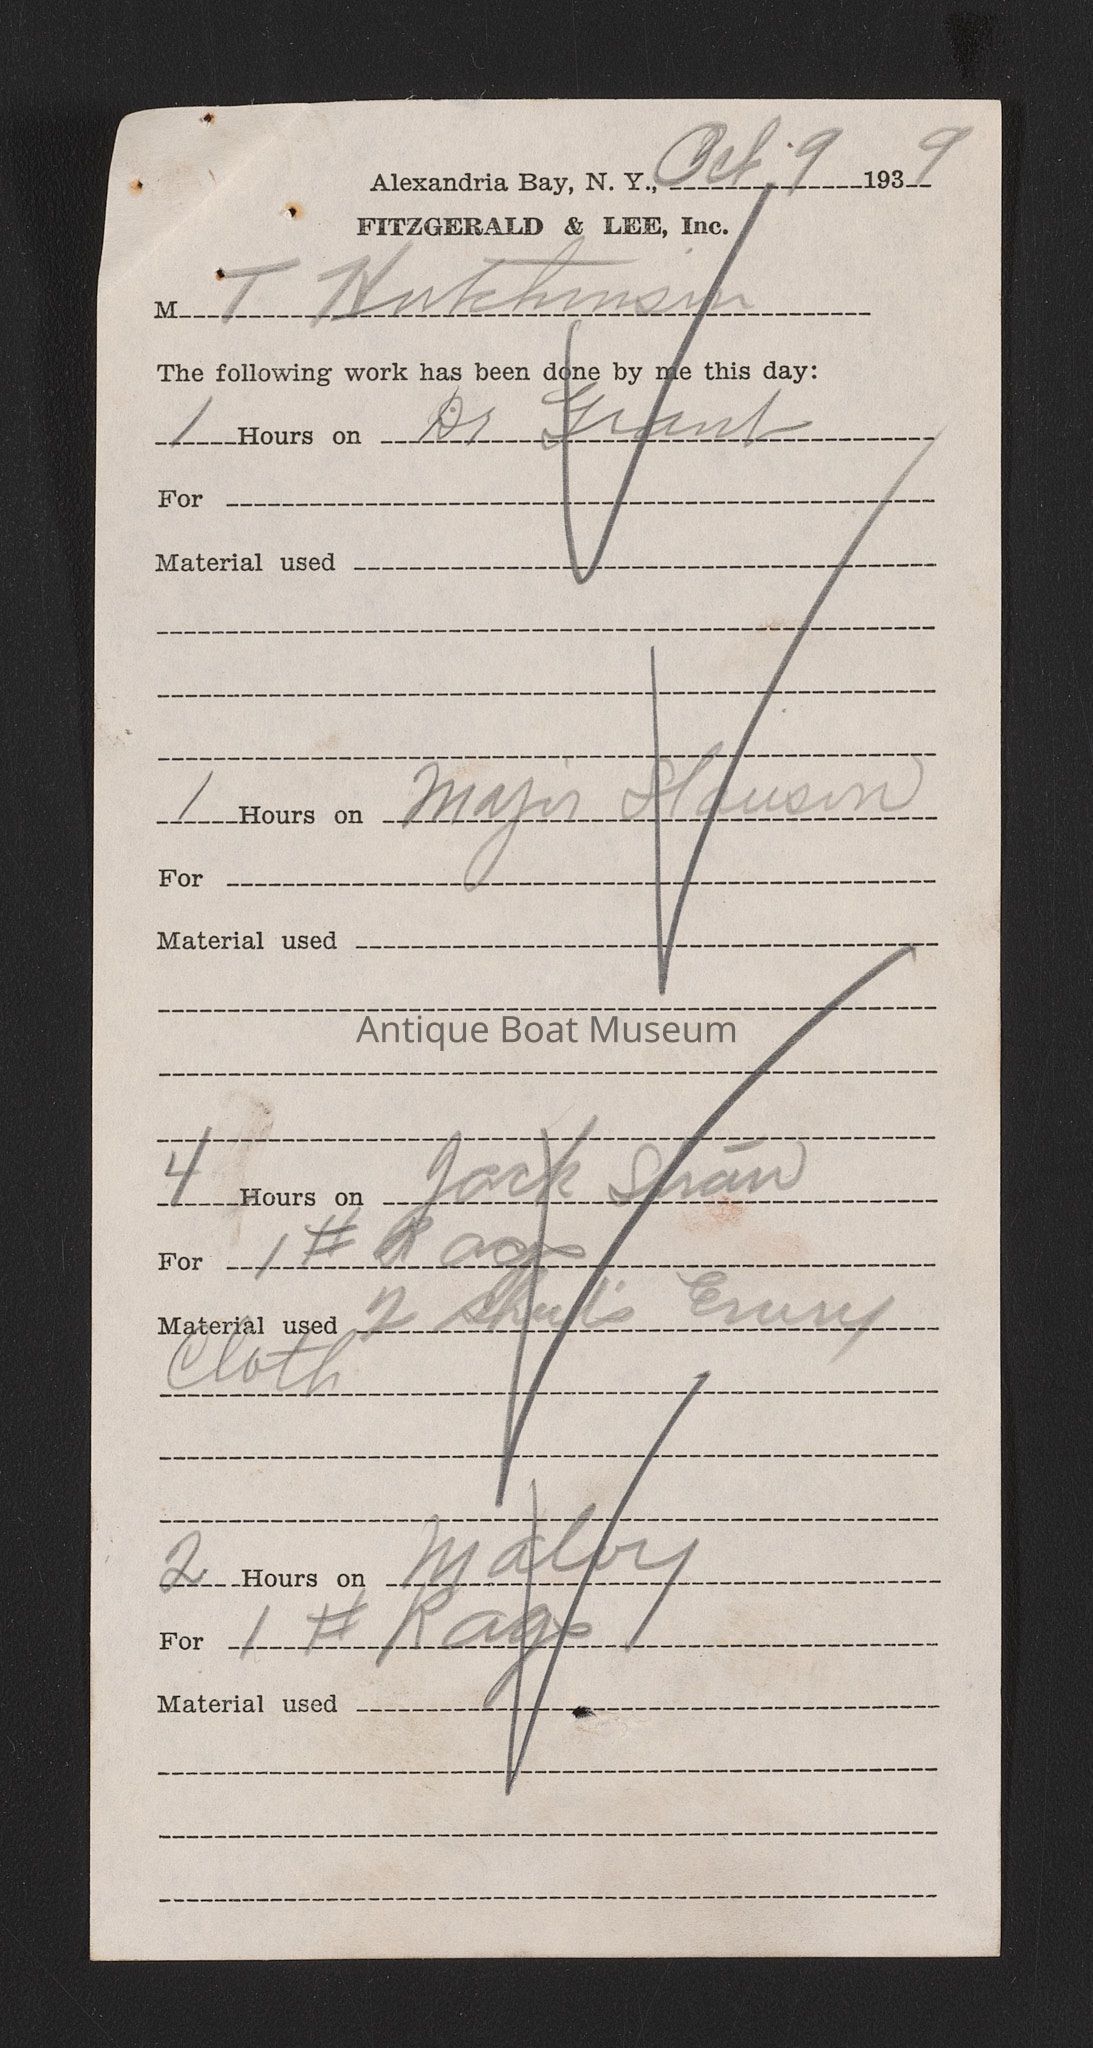 Alexandria Bay, N. Y., Oct. 9 1939
FITZGERALD & LEE, Inc.
M T Hutchinson
The following work has been done by me this day:
1 Hours on Dr Grant
For
Material used
1 Hours on Major Slauson
For
Material used
Antique Boat Museum
4 Hours on Jack
For 1 # Rags
Material used 2 Emery
Cloth
2 Hours on Maloy
For 1 # Rags
Material used